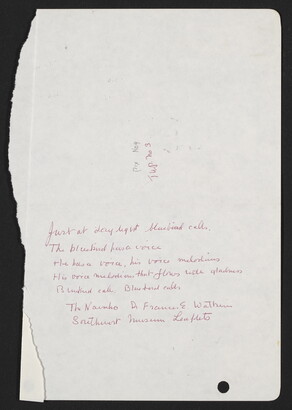 Just at daylight bluebird calls.
The bluebird has a voice
He has a voice, his voice melodious
His voice melodious that flows with gladness
Bluebird calls Bluebird calls
The Navaho Dr Francis E Watkins
Southwest Museum Leaflets
No 3